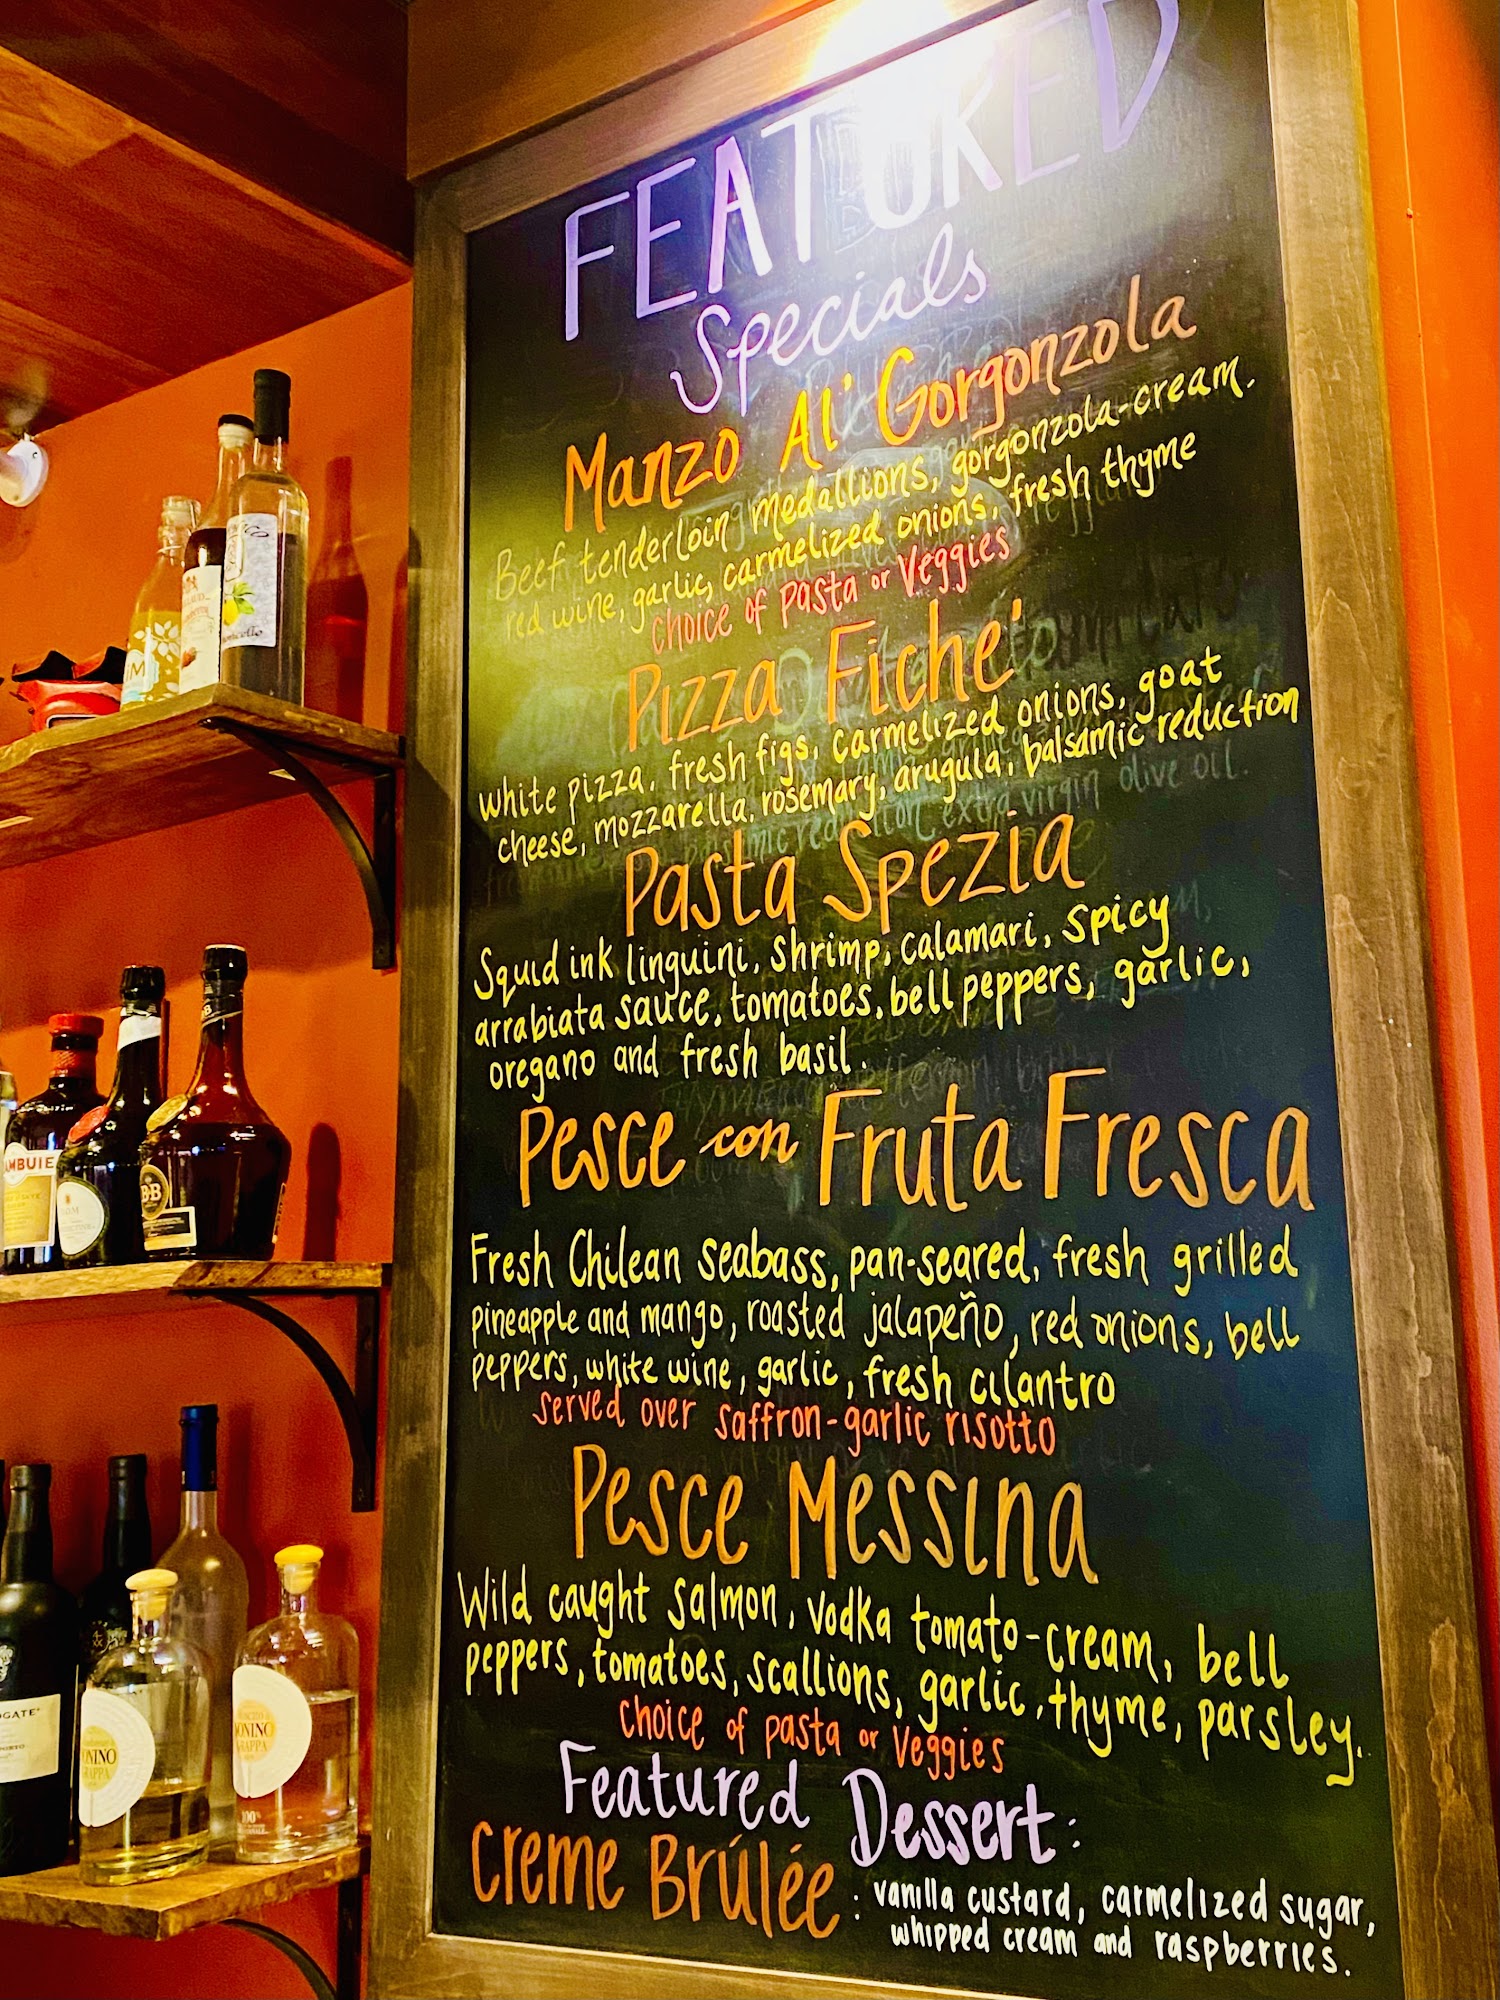 FEATURED
Specials
Manzo Al' Gorgonzola
Beef tenderloin medallions, gorgonzola-cream.
red wine, garlic, carmelized onions, fresh thyme
choice of pasta or veggies
Pizza Fiche'
white pizza, fresh figs, carmelized onions, goat
cheese, mozzarella, rosemary, arugula, balsamic reduction
Pasta Spezia
Squid ink linguini, shrimp, calamari, spicy
arrabiata sauce, tomatoes, bell peppers, garlic,
oregano and fresh basil.
Pesce con Fruta Fresca
Fresh Chilean seabass, pan-seared, fresh grilled
pineapple and mango, roasted jalapeño, red onions, bell
peppers, white wine, garlic, fresh cilantro
served over saffron-garlic risotto
Pesce Messina
Wild caught salmon, vodka tomato-cream, bell
peppers, tomatoes, scallions, garlic, thyme, parsley.
choice of pasta or veggies
Featured Dessert:
Creme Brúlée : vanilla custard, carmelized sugar,
whipped cream and raspberries.
AMBUIE
B&B
OGATE
ONINO
GRAPPA
ONINO
GRAPPA
100%